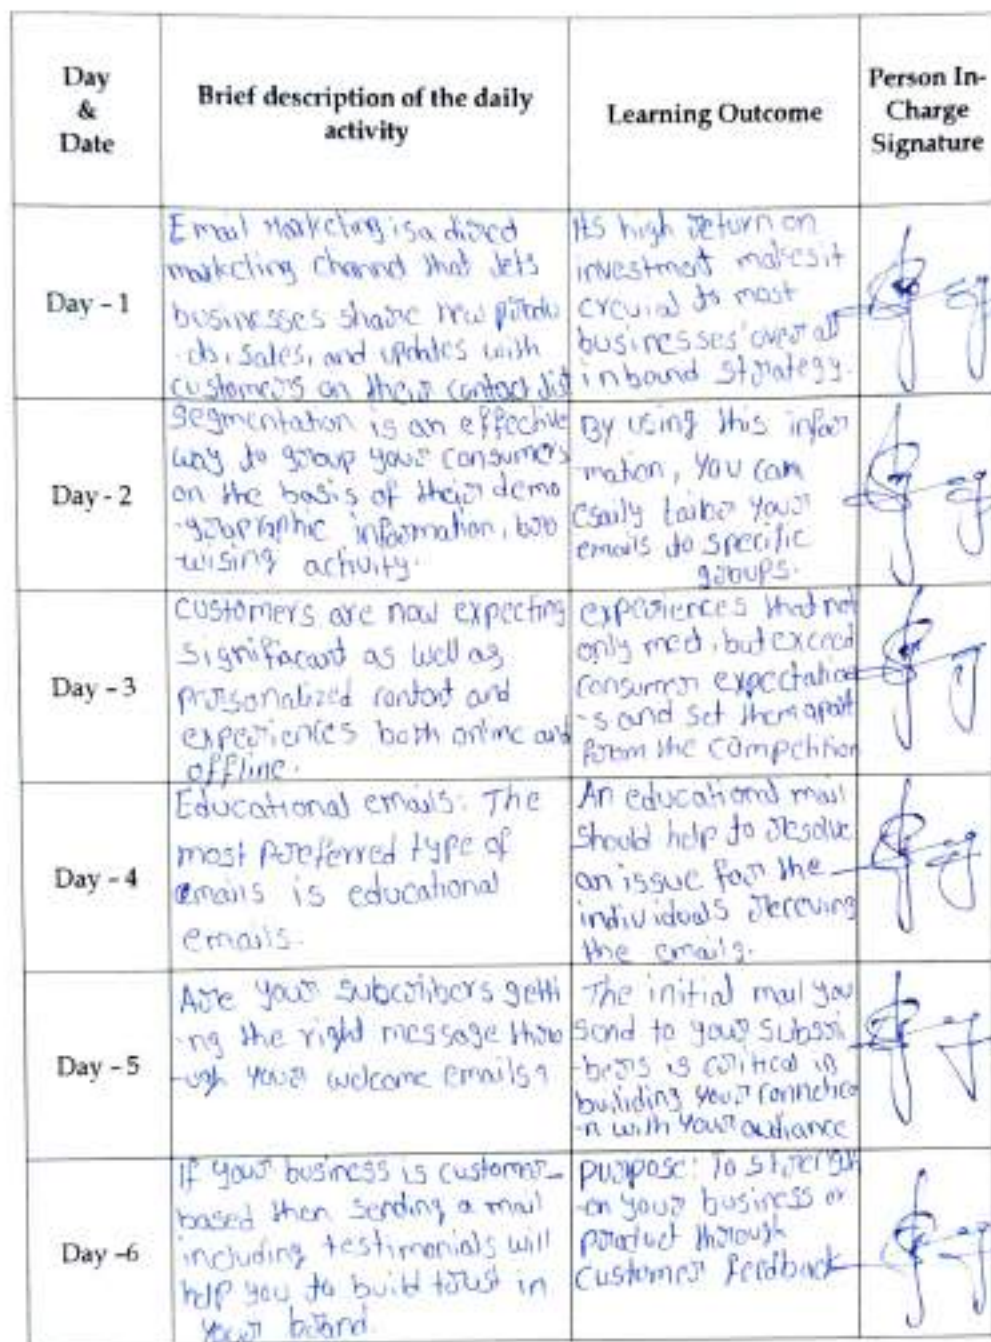 Day
&
Date
Brief description of the daily
activity
Learning Outcome
Person In-
Charge
Signature
Day - 1
Email Marketing is a direct
marketing channel that lets
businesses share new produ
-cts, sales, and updates with
customers on their contact list
Its high return on
investment makes it
crucial to most
businesses' over all
inbound strategy.
Day - 2
Segmentation is an effective
way to group your consumers
on the basis of their demo
-graphic information, bro
-wising activity.
By using this infor
-mation, you can
easily tailor your
emails to specific
groups.
Day - 3
customers are now expecting
significant as well as
personalized contact and
experiences both online and
offline.
experiences that not
only meet, but exceed
consumer expectation
-s and set them apart
from the competition
Day - 4
Educational emails: The
most preferred type of
emails is educational
emails.
An educational mail
should help to resolve
an issue for the
individuals receving
the emails.
Day - 5
Are your subcribers getti
-ng the right message thro
-ugh your welcome emails?
The initial mail you
send to your subscri
-bers is critical in
buliding your connectio
-n with your audiance
Day -6
If your business is customer-
based then sending a mail
including testimonials will
help you to build trust in
your brand.
purpose: To strength
-en your business or
product through
customer feedback